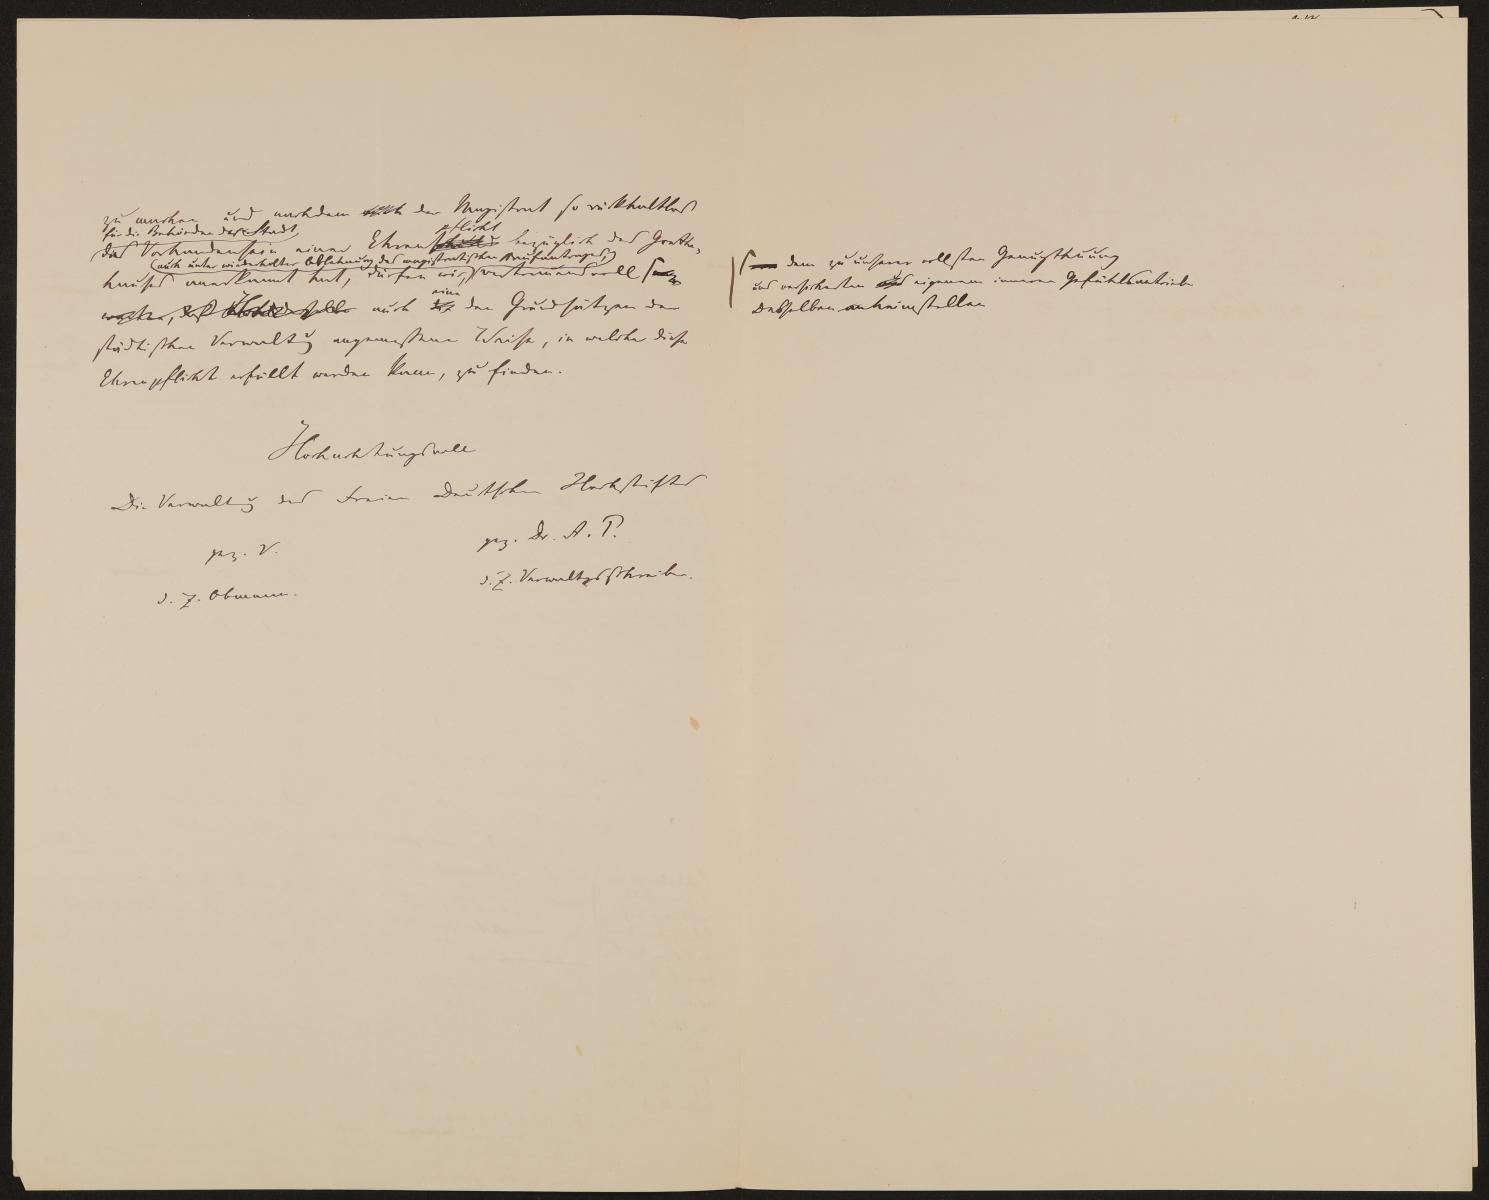 zu machen und nachdem der Magistrat so rückhaltlos
für die Behörden der Stadt
das Vorhandensein einer Ehrenpflicht bezüglich des Goethe-
(auch unter wiederholter Ablehnung des magistratischen Kaufantrages)
hauses anerkannt hat, dürfen wir, vertrauensvoll
auch eine den Grundsätzen der
städtischen Verwaltg angemessene Weise, in welcher diese
Ehrenpflicht erfüllt werden kann, zu finden.
Hochachtungsvoll
Die Verwaltg des Freien Deutschen Hochstiftes
gez. V.
gez. Dr. A. P.
d. Z. Obmann.
d. Z. Verwaltgsschreiber.
dem zu unserer vollsten Genugthuung
und versicherten eigenem inneren Gefühlsantriebe
Desselben anheimstellen